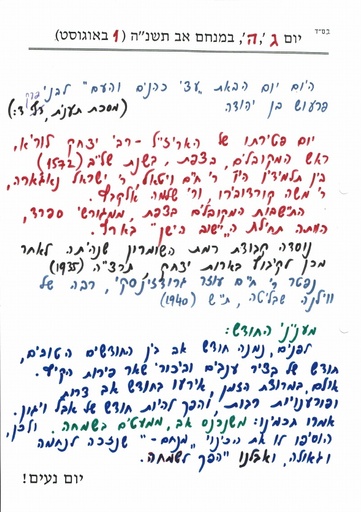 בס״ד
יום ג׳, ה׳, במנחם אב תשנ״ה (1 באוגוסט)
היום יום הבאת ״עצי כהנים והעם״ לבני
פרעוש בן יהודה (מסכת תענית, פרק ד:)
יום פטירתו של האריז״ל - רבי יצחק לוריא,
ראש המקובלים, בצפת, בשנת של״ב (1572)
בין תלמידיו היו ר׳ חיים ויטאל, ר׳ ישראל נאג׳ארה,
ר׳ משה קורדוברו, ור׳ שלמה אלקבץ.
התישבות המקובלים בצפת, ממגורשי ספרד,
היתה תחילת ה״ישוב הישן״ בארץ.
נוסדה קבוצת רמת השומרון שהיתה לאחר
מכן לקיבוץ בארות יצחק, תרצ״ה (1935)
נפטר ר׳ חיים עוזר גרודזינסקי, רבה של
ווילנה שבליטה, ת״ש (1940)
מעניני החודש:
לפנים, נמנה חודש אב בין החודשים הטובים,
חודש של בציר ענבים וביכורי שאר פירות הקיץ.
אולם, במרוצת הזמן, אירעו בחודש אב צרות
ופורעניות רבות, והפך להיות חודש של אבל ויגון.
אמרו חכמינו: משנכנס אב, ממעטים בשמחה. ולכן,
הוסיפו לו את הכינוי ״מנחם-״ שנזכה לנחמה
וגאולה, ואבלנו יהפך לשמחה.
יום נעים!